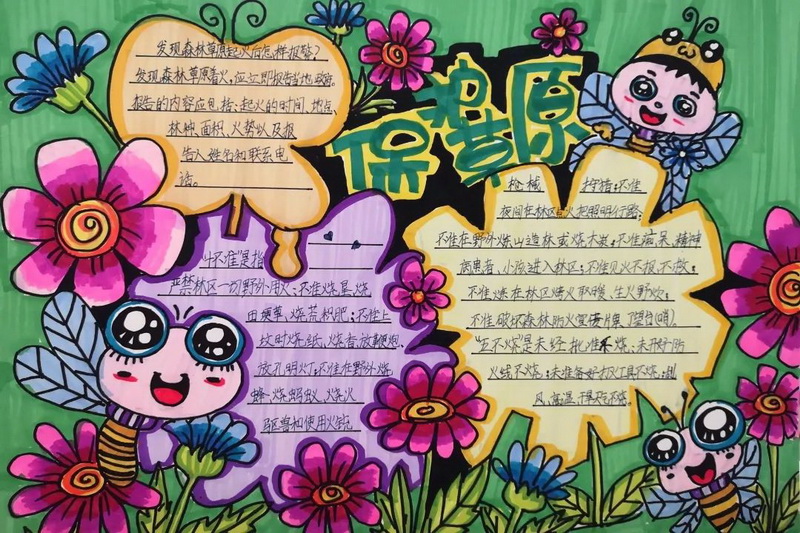 保护草原
发现森林草原起火后怎样报警？
发现森林草原着火，应立即报告当地政府。
报告的内容应包括：起火的时间、地点、
林种、面积、火势以及报
告人姓名和联系电
话。
"十不准"是指
严禁林区一切野外用火；不准烧
田埂草、烧荒积肥；不准上
坟时烧纸、烧香、放鞭炮、
放孔明灯；不准在野外烧
蜂、烧蚂蚁、烧火
驱兽和使用火铳
枪械 狩猎；不准
夜间在林区 火把照明行路；
不准在野外烧山造林或烧木炭；不准痴呆、精神
病患者、小孩进入林区；不准见火不报、不救；
不准 在林区烤火取暖、生火野炊；
不准破坏森林防火宣传牌、了望台(哨)。
"五不烧"是未经批准不烧；未开好防
火线不烧；未准备好扑火工具不烧；刮
风、高温干旱天不烧